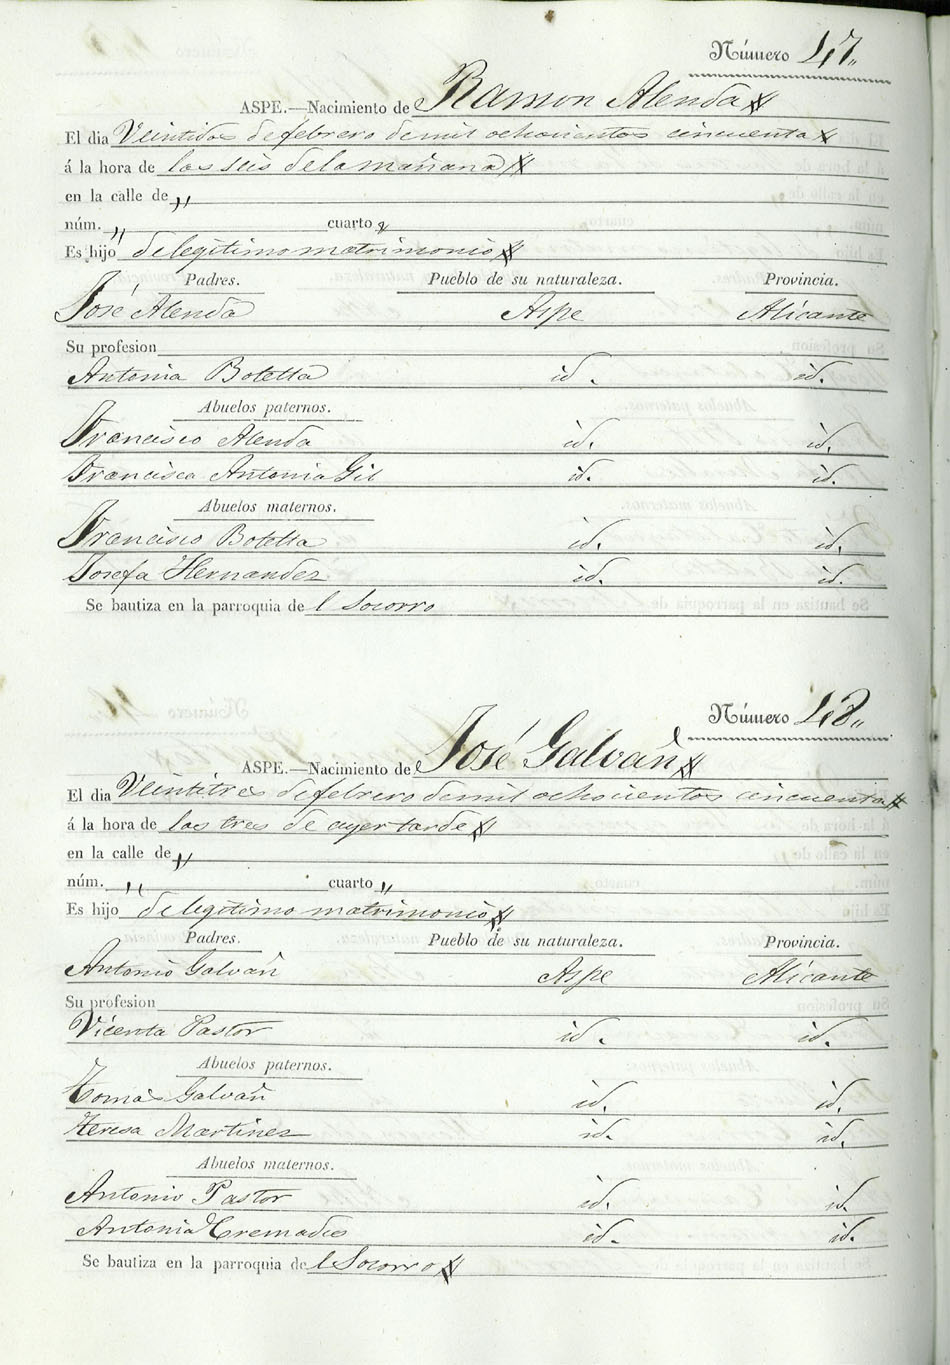 Número 47„
ASPE.—Nacimiento de Ramon Alenda
El dia Veintidos de febrero de mil ochocientos cincuenta
á la hora de las seis de la mañana
en la calle de „
núm. „ cuarto „
Es hijo de legitimo matrimonio
Padres. Pueblo de su naturaleza. Provincia.
José Alenda Aspe Alicante
Su profesion
Antonia Botella id. id.
Abuelos paternos.
Francisco Alenda id. id.
Francisca Antonia Gil id. id.
Abuelos maternos.
Francisco Botella id. id.
Josefa Hernandez id. id.
Se bautiza en la parroquia de l Socorro
Número 48„
ASPE.—Nacimiento de José Galvañ
El dia Veintitres de febrero de mil ochocientos cincuenta
á la hora de las tres de ayer tarde
en la calle de „
núm. „ cuarto „
Es hijo de legitimo matrimonio
Padres. Pueblo de su naturaleza. Provincia.
Antonio Galvañ Aspe Alicante
Su profesion
Vicenta Pastor id. id.
Abuelos paternos.
Tomas Galvañ id. id.
Teresa Martinez id. id.
Abuelos maternos.
Antonio Pastor id. id.
Antonia Cremades id. id.
Se bautiza en la parroquia de l Socorro